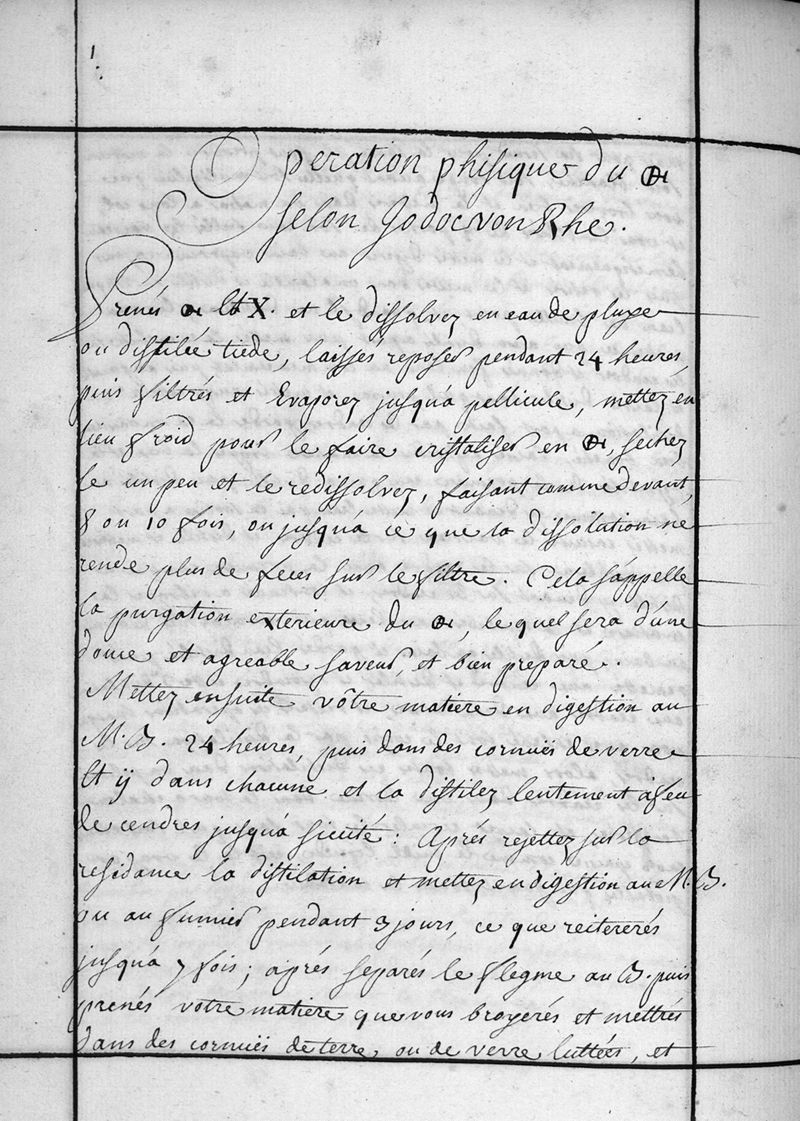 1.
Operation phisique du 🜖
selon Jodoc von Rhe.
Prenés 🜖 lb X. et le dissolvez en eau de pluye
ou distilée tiede, laissés reposer pendant 24 heures,
puis filtrés et Evaporez jusqu'a pellicule, mettez en
lieu froid pour le faire cristaliser en 🜖, sechez
le un peu et le redissolvez, faisant comme devant,
8 ou 10 fois, ou jusqu'a ce que la dissolation ne
rende plus de feces sur le filtre. Cela s'appelle
la purgation exterieure du 🜖, le quel sera d'une
douce et agreable saveur, et bien preparé.
Mettez ensuite vôtre matiere en digestion au
M.B. 24 heures, puis dans des cornuës de verre
lb ij dans chacune et la distilez lentement à feu
de cendres jusqu'à siccité: Aprés rejettez sur la
residance la distilation et mettez en digestion au M.B.
ou au fumier pendant 3 jours, ce que reitererés
jusqu'a 7 fois; aprés separés le flegme au B. puis
prenés votre matiere que vous broyerés et mettrés
dans des cornuës de terre, ou de verre luttées, et